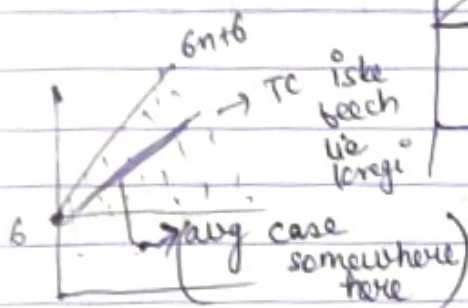 6n+6
→ TC iske
beech
lie
kregi
6
→ (avg case
somewhere
here)